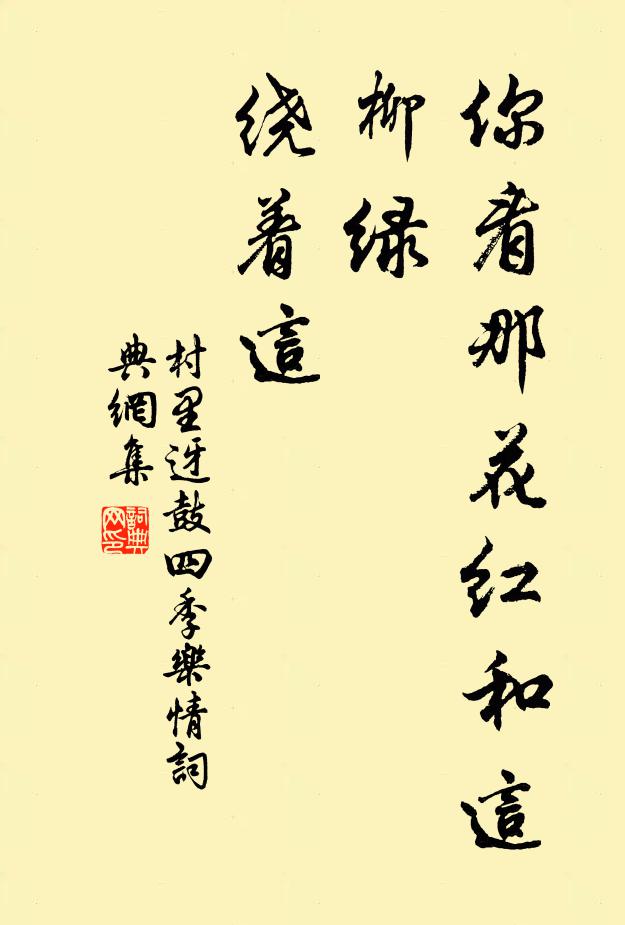 你看那花红和這
柳绿
绕着這
村里迓鼓四季樂情詞
典網集
詞典
网印